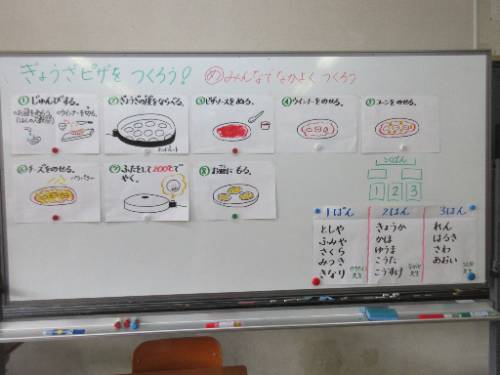 ぎょうざピザを つくろう!
め みんなで なかよく つくろう
①じゅんびする。
②ぎょうざの皮をならべる。
③ピザソースをぬる。
④ウインナーをのせる。
⑤コーンをのせる。
⑥チーズをのせる。
⑦ふたをして200℃で
やく。
⑧お皿に もる。
1 2 3
1ぱん 2はん 3ぱん
としや きょうか れん
ふみや かほ はるき
さくら ゆうま さわ
みつき こうた あおい
きなり こうすけ